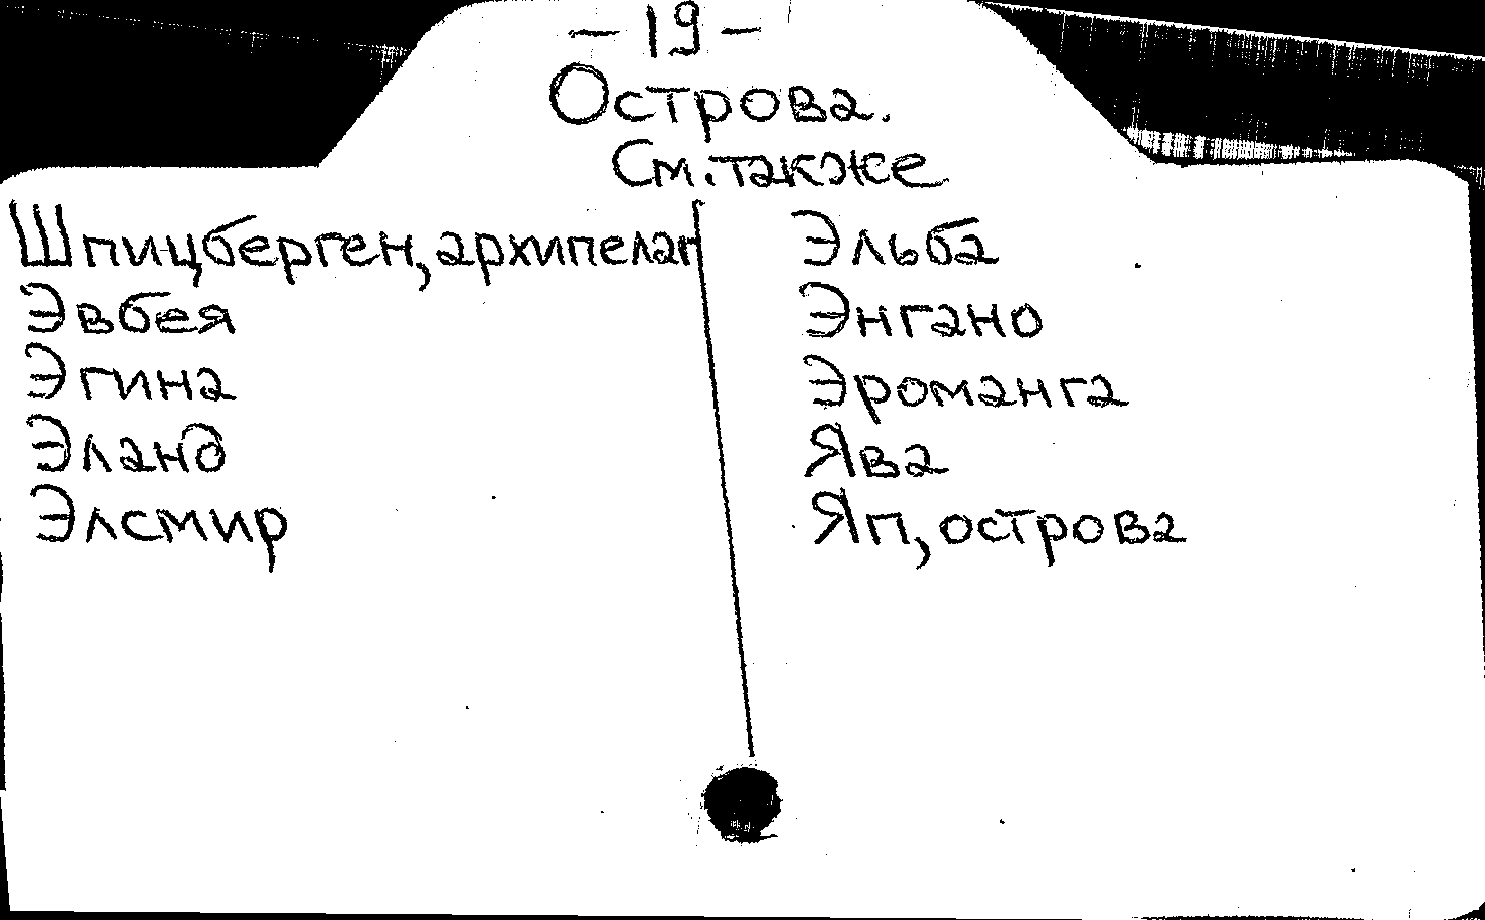 — 19 —
Острова.
См. также
Шпицберген, архипелаг
Эвбея
Эгина
Эланд
Элсмир
Эльба
Энгано
Эроманга
Ява
Яп, острова